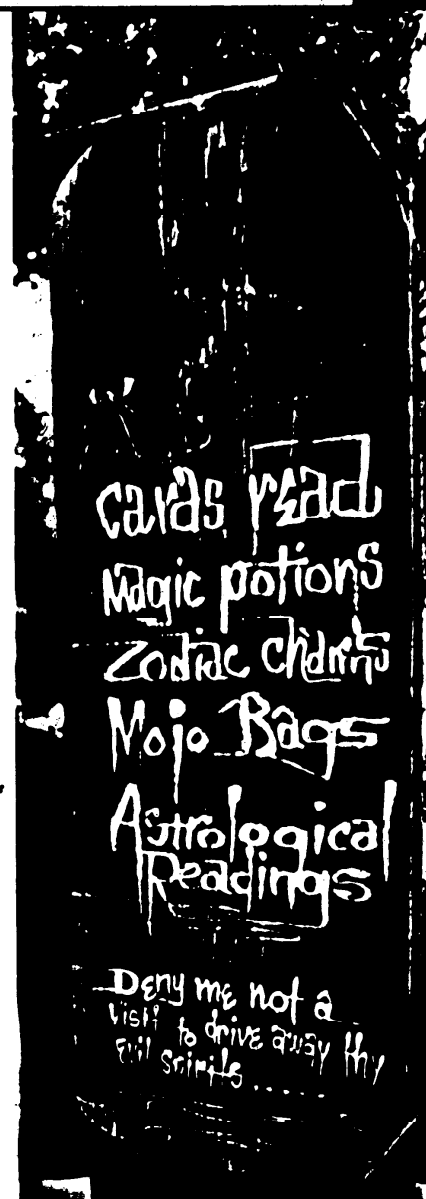 cards read
Magic potions
Zodiac Charms
Mojo Bags
Astrological
Readings
Deny me not a
visit to drive away thy
Evil Spirits......